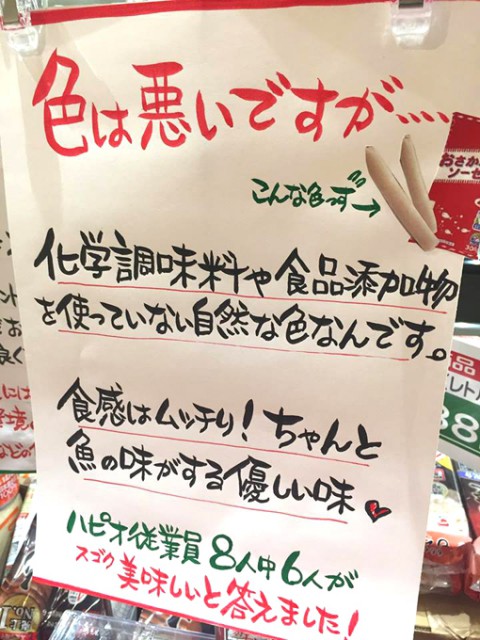 色は悪いですが….
こんな色っす→
おさか
ソーセ
化学調味料や食品添加物
を使っていない自然な色なんです。
食感はムッチリ!ちゃんと
魚の味がする優しい味
ハピオ従業員8人中6人が
スゴク美味しいと答えました!